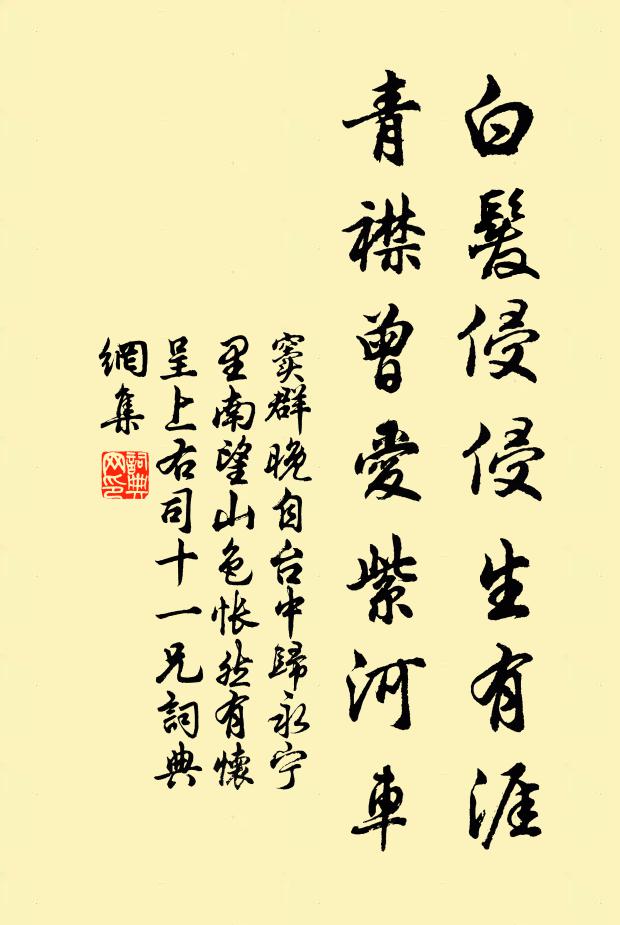 白髮侵侵生有涯
青襟曾愛紫河車
窦群晚自台中歸永宁
里南望山色悵然有懷
呈上右司十一兄詞典
網集
詞典
网印